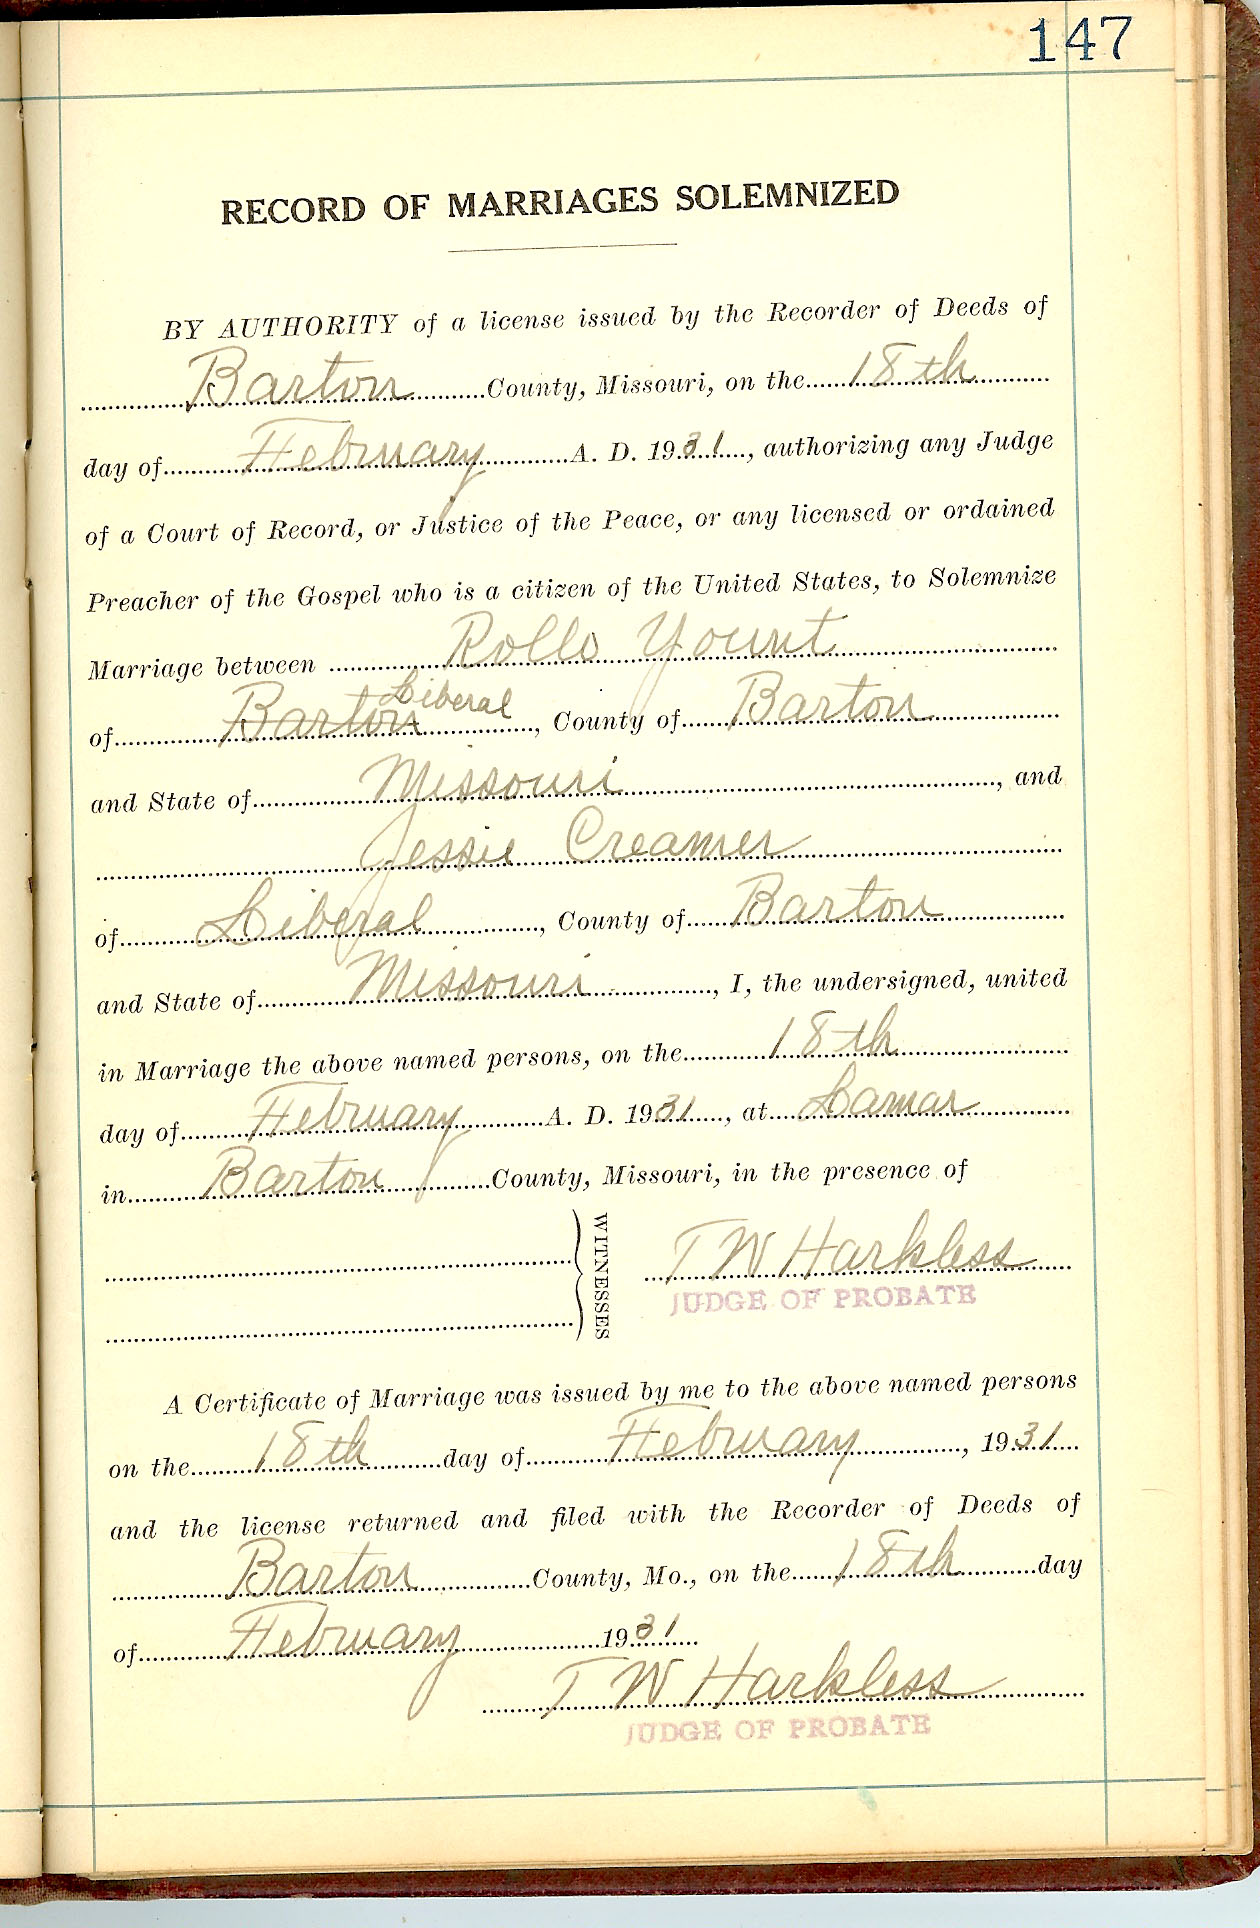 147
RECORD OF MARRIAGES SOLEMNIZED
BY AUTHORITY of a license issued by the Recorder of Deeds of
Barton County, Missouri, on the 18th
day of February A. D. 1931, authorizing any Judge
of a Court of Record, or Justice of the Peace, or any licensed or ordained
Preacher of the Gospel who is a citizen of the United States, to Solemnize
Marriage between Rollo Yount
of Barton Liberal, County of Barton
and State of Missouri, and
Jessie Creamer
of Liberal, County of Barton
and State of Missouri, I, the undersigned, united
in Marriage the above named persons, on the 18th
day of February A. D. 1931, at Lamar
in Barton County, Missouri, in the presence of
WITNESSES
T W Harkless
JUDGE OF PROBATE
A Certificate of Marriage was issued by me to the above named persons
on the 18th day of February, 1931
and the license returned and filed with the Recorder of Deeds of
Barton County, Mo., on the 18th day
of February 1931
T W Harkless
JUDGE OF PROBATE